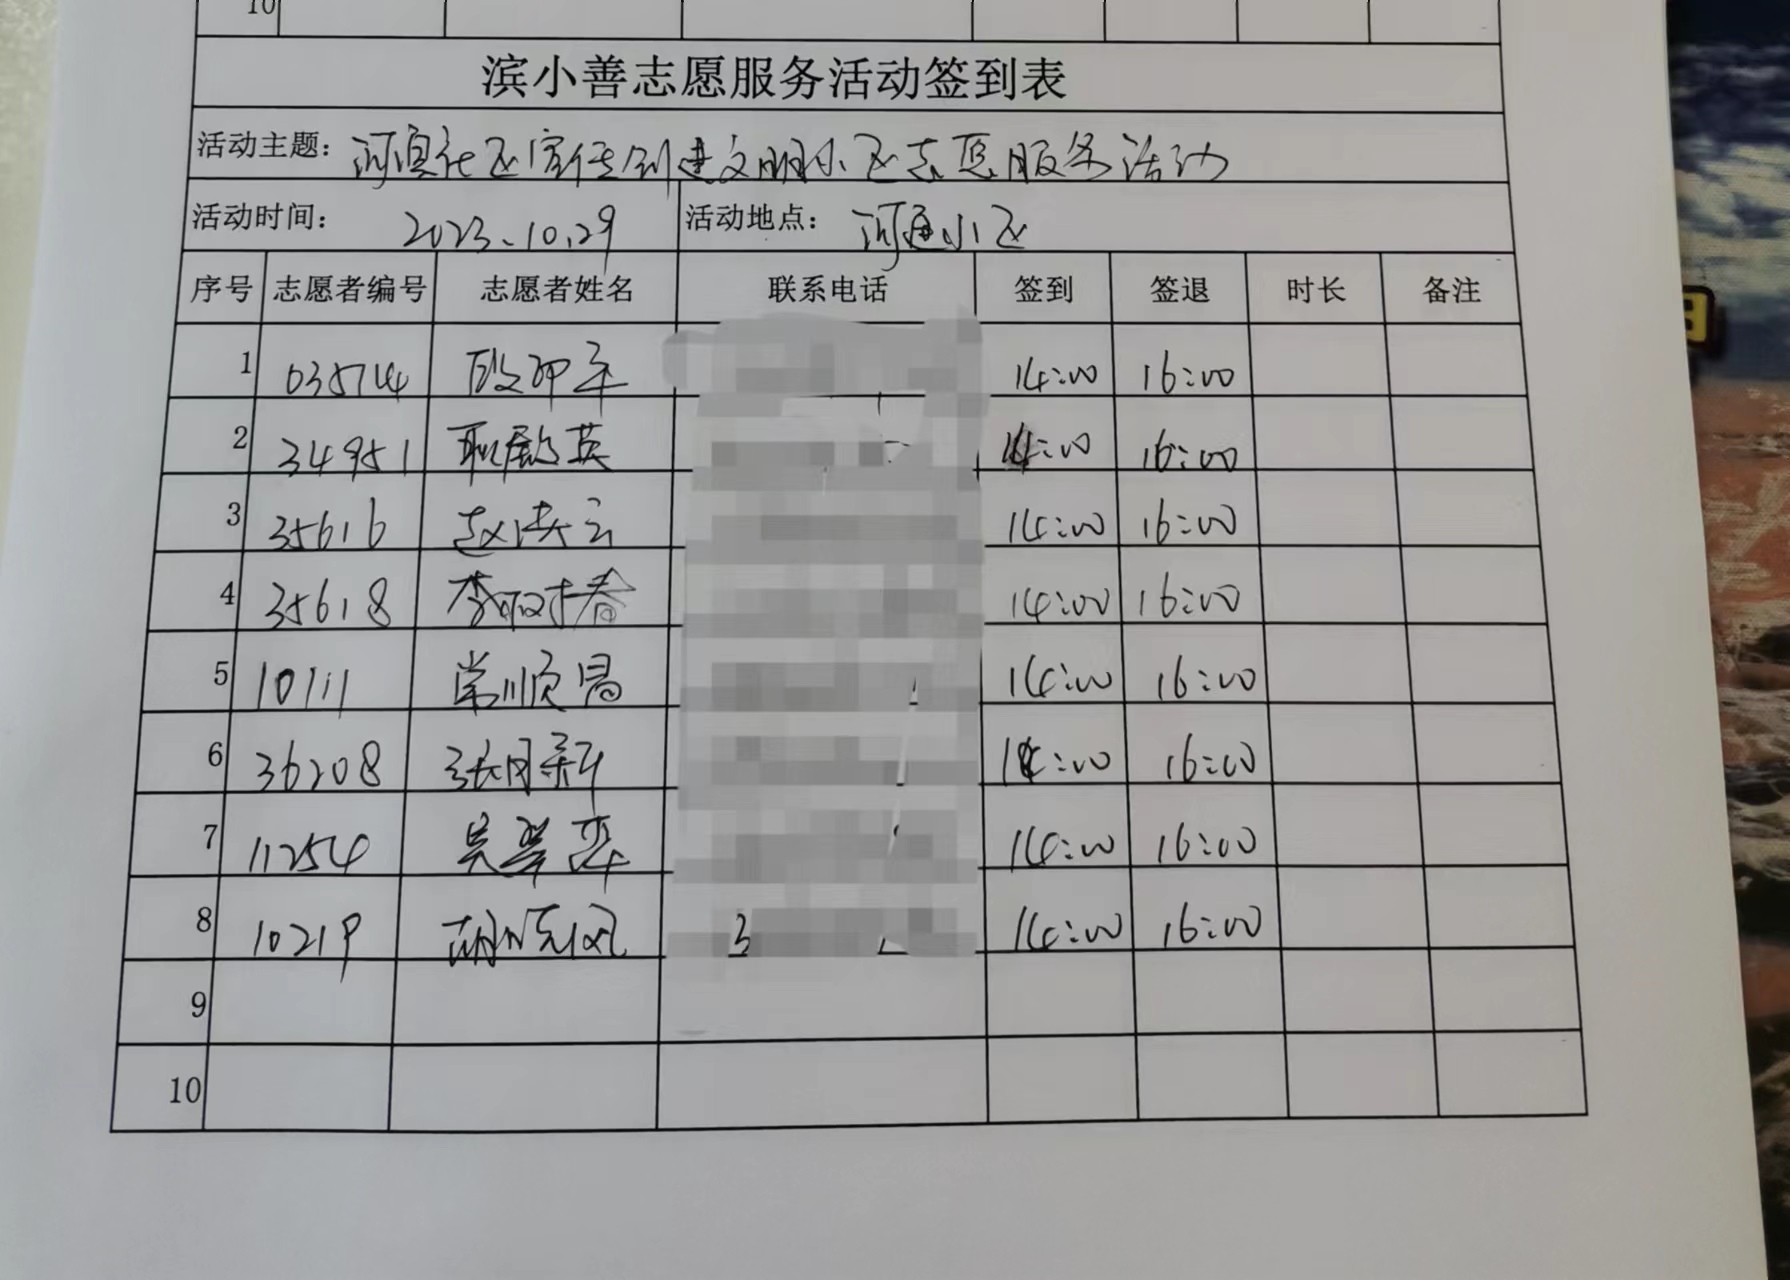 10
滨小善志愿服务活动签到表
活动主题：河滨社区宣传创建文明小区志愿服务活动
活动时间： 2023.10.29 活动地点： 河通小区
序号 志愿者编号 志愿者姓名 联系电话 签到 签退 时长 备注
1 03574 14:00 16:00
2 34951 英 14:00 16:00
3 35616 赵洪云 14:00 16:00
4 35618 李丽春 14:00 16:00
5 10111 常顺昌 14:00 16:00
6 36208 张月新 14:00 16:00
7 11254 吴翠萍 14:00 16:00
8 10219 胡晓凤 3 14:00 16:00
9
10